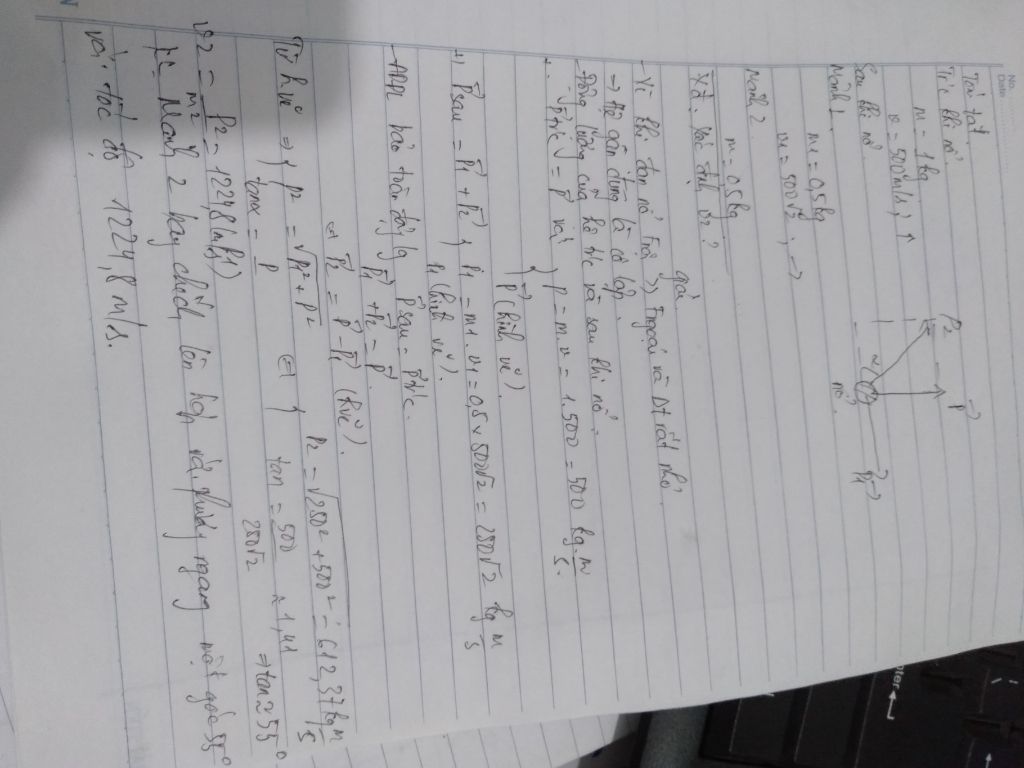 No.
Date
Tóm tắt.
Trc khi nổ
m = 1kg
v = 500m/s, ↑
Sau khi nổ
Mảnh 1.
m1 = 0,5kg
v1 = 500√2, →
Mảnh 2
m = 0,5kg
Xác định v2?
P2
P
α
nổ
P1
giải
Vì khi đạn nổ Fnội >> Fngoại và Δt rất nhỏ
→ Hệ gần đúng là cô lập.
- Động lượng của hệ trc và sau khi nổ.
= P và p = m.v = 1.500 = 500 kg.m/s.
P (hình vẽ).
+) Psau = P1 + P2 p1 = m1.v1 = 0,5 x 500√2 = 250√2 kg m/s
p1 (hình vẽ).
- ADĐL bảo toàn Psau = Ptrc.
P1 + P2 = P.
P2 = P - P1 (hvẽ).
Từ hvẽ => p2 = √p1² + p² P2 = √250² + 500² = 612,37 kg m/s
tanα = P tan = 500/250√2 ≈ 1,41 => tan 255°
v2 = p2/m2 = 1224,8 (m/s)
Mảnh 2 bay chếch lên hợp với phương ngang một góc 55°
với tốc độ 1224,8 m/s.
enter